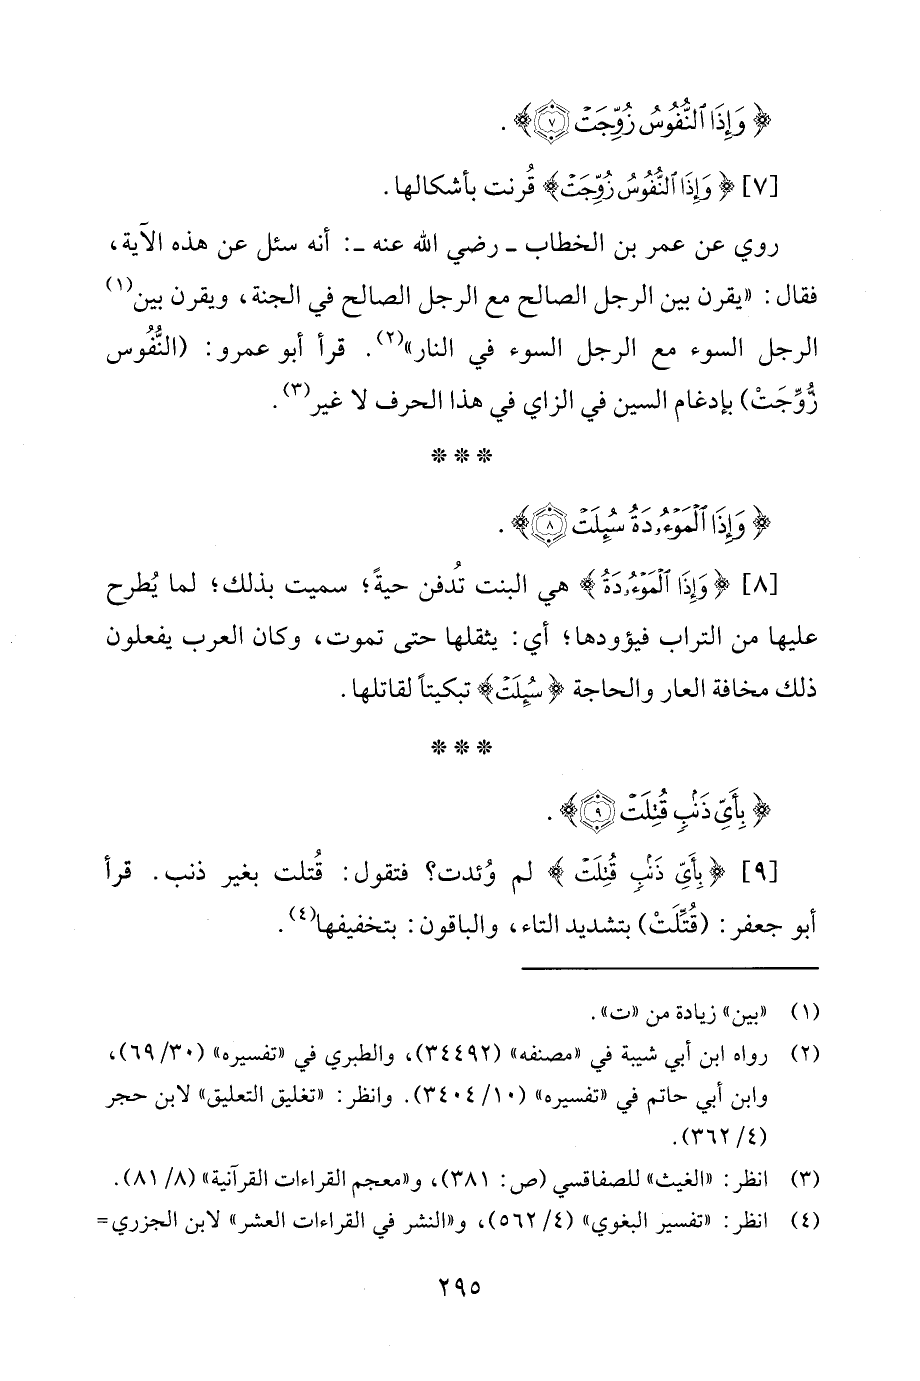 ﴿ وَإِذَا ٱلنُّفُوسُ زُوِّجَتْ ٧ ﴾ .
[٧] ﴿ وَإِذَا ٱلنُّفُوسُ زُوِّجَتْ ﴾ قُرنت بأشكالها .
روي عن عمر بن الخطاب ـ رضي الله عنه ـ: أنه سئل عن هذه الآية،
فقال: «يقرن بين الرجل الصالح مع الرجل الصالح في الجنة، ويقرن بين(١)
الرجل السوء مع الرجل السوء في النار»(٢). قرأ أبو عمرو: (النُّفُوس
زُّوِّجَتْ) بإدغام السين في الزاي في هذا الحرف لا غير(٣).
* * *
﴿ وَإِذَا ٱلْمَوْءُۥدَةُ سُئِلَتْ ٨ ﴾ .
[٨] ﴿ وَإِذَا ٱلْمَوْءُۥدَةُ ﴾ هي البنت تُدفن حيةً؛ سميت بذلك؛ لما يُطرح
عليها من التراب فيؤودها؛ أي: يثقلها حتى تموت، وكان العرب يفعلون
ذلك مخافة العار والحاجة ﴿ سُئِلَتْ ﴾ تبكيتاً لقاتلها .
* * *
﴿ بِأَيِّ ذَنۢبٍ قُتِلَتْ ٩ ﴾ .
[٩] ﴿ بِأَيِّ ذَنۢبٍ قُتِلَتْ ﴾ لم وُئدت؟ فتقول: قُتلت بغير ذنب. قرأ
أبو جعفر: (قُتِّلَتْ) بتشديد التاء، والباقون: بتخفيفها(٤).
(١) «بين» زيادة من «ت».
(٢) رواه ابن أبي شيبة في «مصنفه» (٣٤٤٩٢)، والطبري في «تفسيره» (٣٠/ ٦٩)،
وابن أبي حاتم في «تفسيره» (١٠/ ٣٤٠٤). وانظر: «تغليق التعليق» لابن حجر
(٤/ ٣٦٢).
(٣) انظر: «الغيث» للصفاقسي (ص: ٣٨١)، و«معجم القراءات القرآنية» (٨/ ٨١).
(٤) انظر: «تفسير البغوي» (٤/ ٥٦٢)، و«النشر في القراءات العشر» لابن الجزري=
٢٩٥